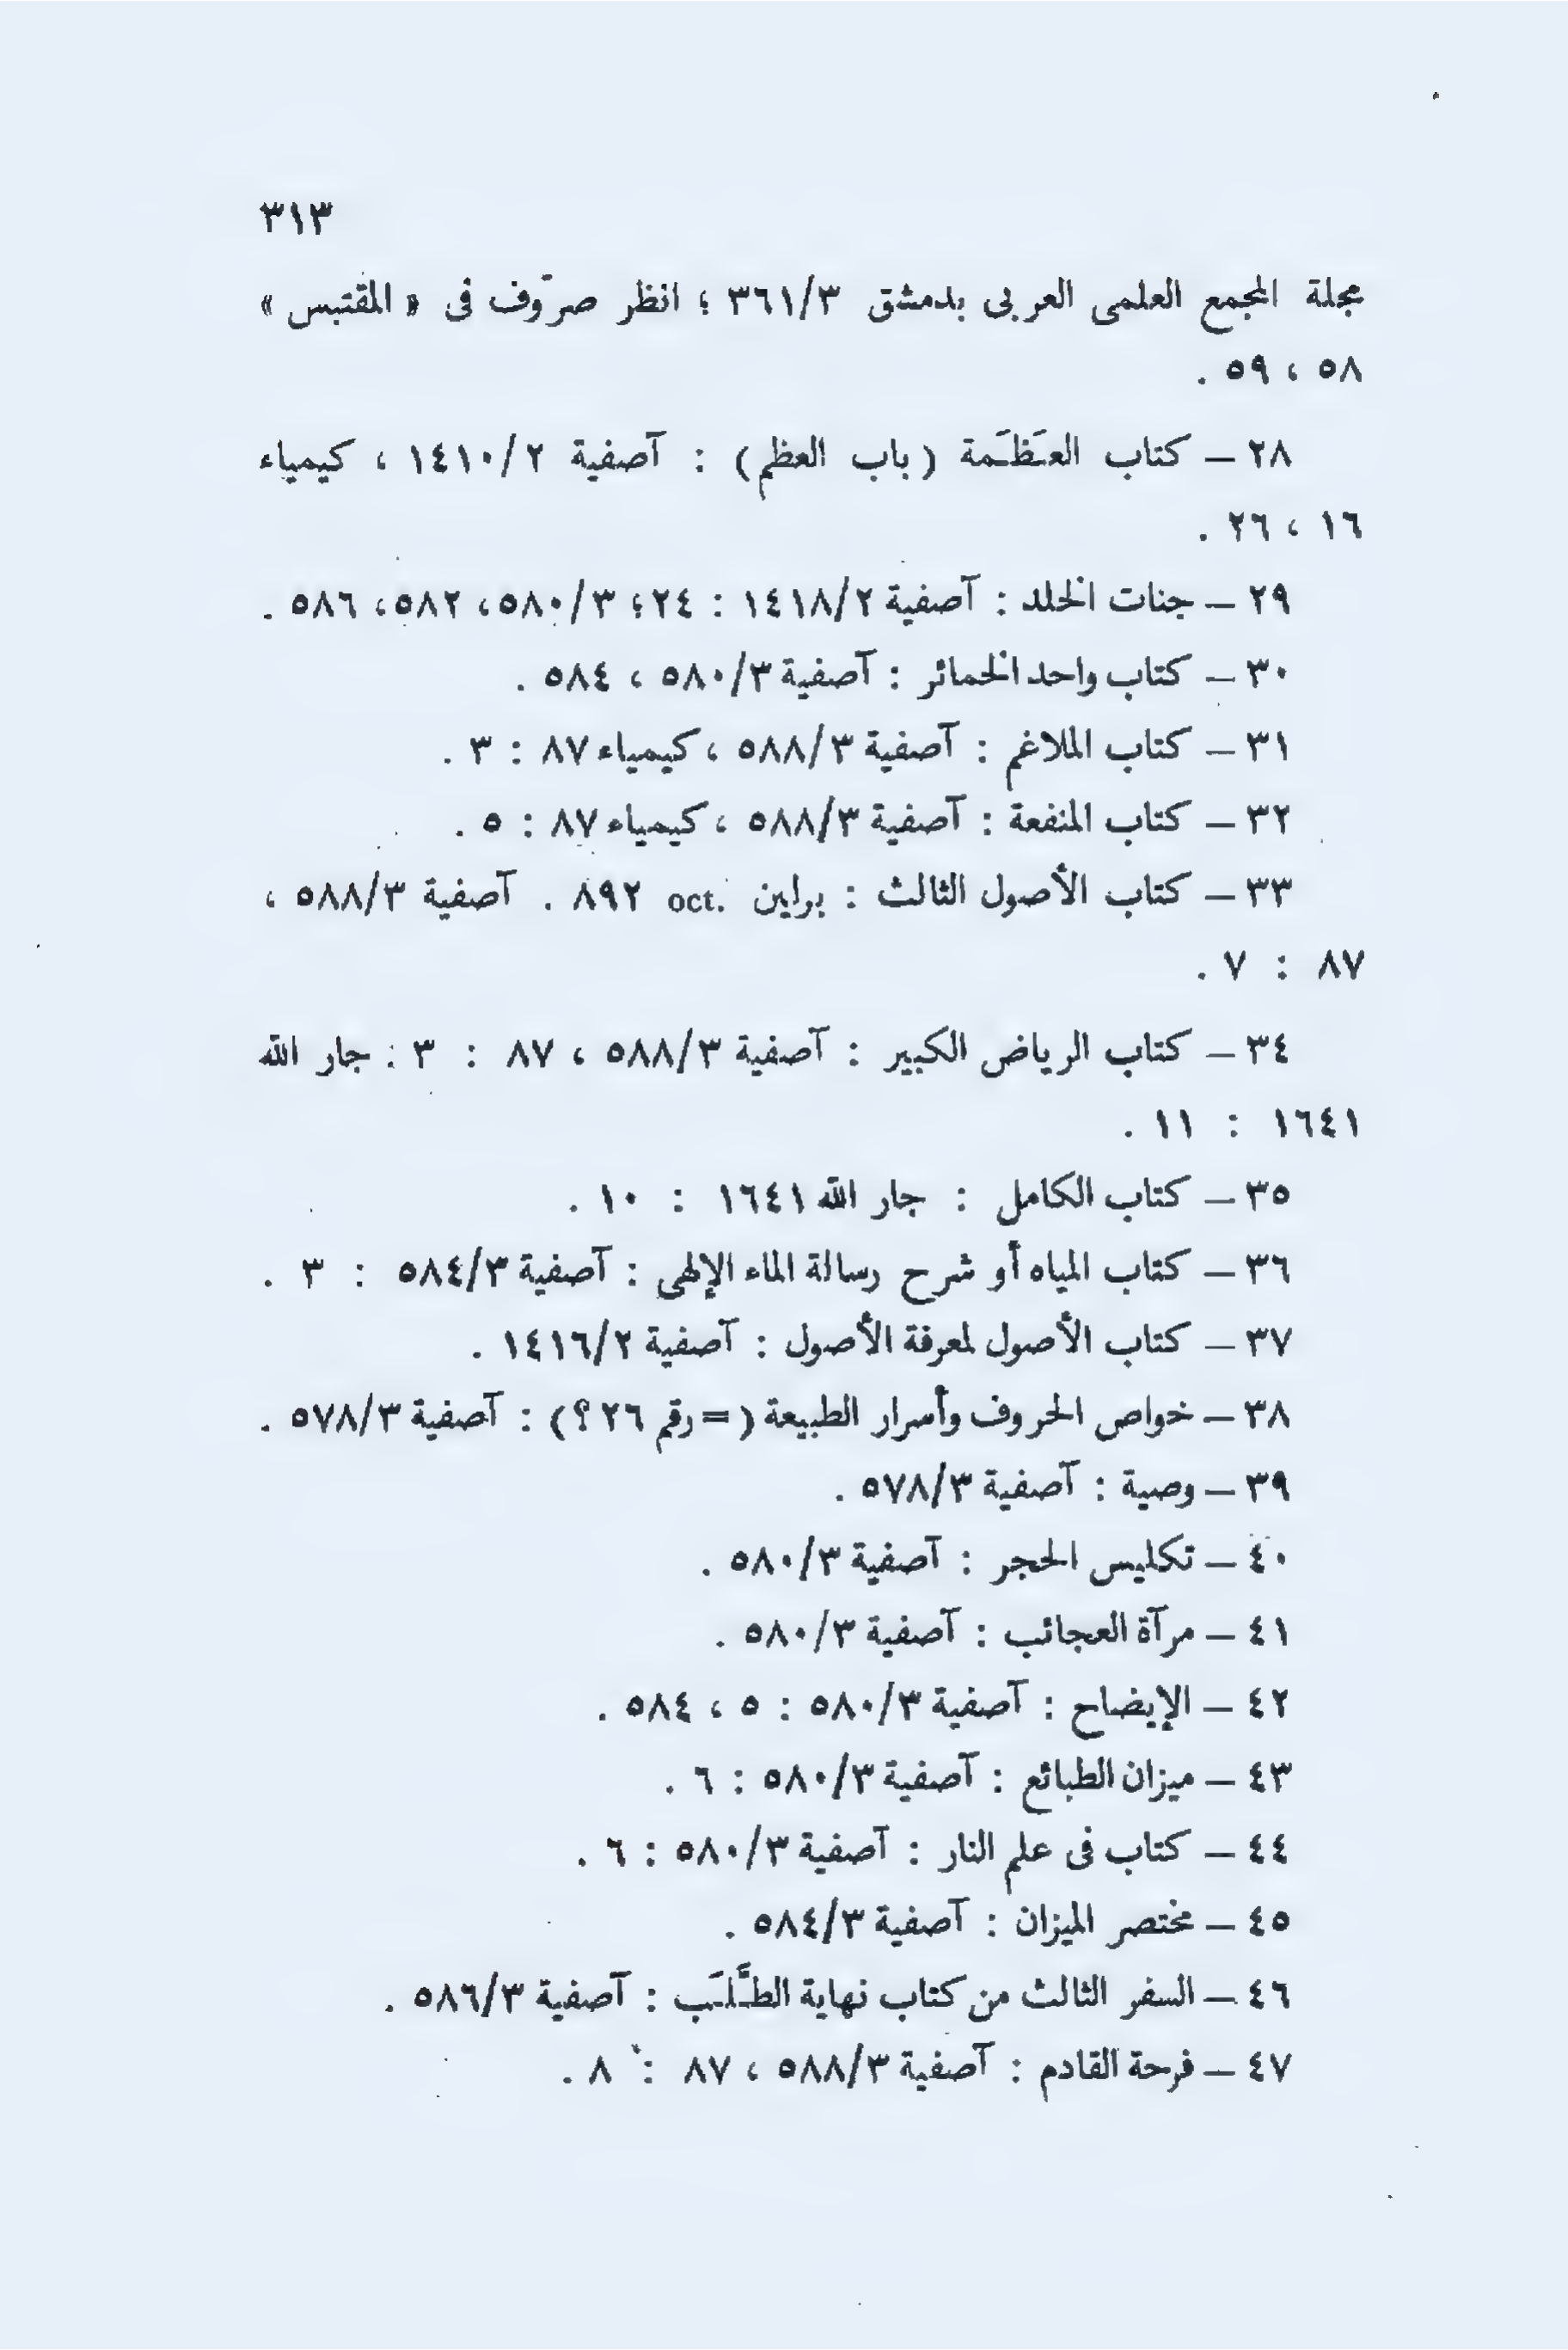 ٣١٣
مجلة المجمع العلمى العربى بدمشق ٣٦١/٣ ؛ انظر صرّوف فى « المقتبس »
٥٨ ، ٥٩ .
٢٨ – كتاب العَظَمة ( باب العظم ) : آصفية ١٤١٠/٢ ، كيمياء
١٦ ، ٢٦ .
٢٩ – جنات الخلد : آصفية ١٤١٨/٢ : ٢٤؛ ٥٨٠/٣، ٥٨٢، ٥٨٦ .
٣٠ – كتاب واحد الخمائر : آصفية ٥٨٠/٣ ، ٥٨٤ .
٣١ – كتاب الملاغم : آصفية ٥٨٨/٣ ، كيمياء ٨٧ : ٣ .
٣٢ – كتاب المنفعة : آصفية ٥٨٨/٣ ، كيمياء ٨٧ : ٥ .
٣٣ – كتاب الأصول الثالث : براين oct. ٨٩٢ . آصفية ٥٨٨/٣ ،
٨٧ : ٧ .
٣٤ – كتاب الرياض الكبير : آصفية ٥٨٨/٣ ، ٨٧ : ٣ : جار الله
١٦٤١ : ١١ .
٣٥ – كتاب الكامل : جار الله ١٦٤١ : ١٠ .
٣٦ – كتاب المياه أو شرح رسالة الماء الإلهى : آصفية ٥٨٤/٣ : ٣ .
٣٧ – كتاب الأصول لمعرفة الأصول : آصفية ١٤١٦/٢ .
٣٨ – خواص الحروف وأسرار الطبيعة ( = رقم ٢٦ ؟ ) : آصفية ٥٧٨/٣ .
٣٩ – وصية : آصفية ٥٧٨/٣ .
٤٠ – تكليس الحجر : آصفية ٥٨٠/٣ .
٤١ – مرآة العجائب : آصفية ٥٨٠/٣ .
٤٢ – الإيضاح : آصفية ٥٨٠/٣ : ٥ ، ٥٨٤ .
٤٣ – ميزان الطبائع : آصفية ٥٨٠/٣ : ٦ .
٤٤ – كتاب فى علم النار : آصفية ٥٨٠/٣ : ٦ .
٤٥ – مختصر الميزان : آصفية ٥٨٤/٣ .
٤٦ – السفر الثالث من كتاب نهاية الطَّلَب : آصفية ٥٨٦/٣ .
٤٧ – فرحة القادم : آصفية ٥٨٨/٣ ، ٨٧ : ٨ .